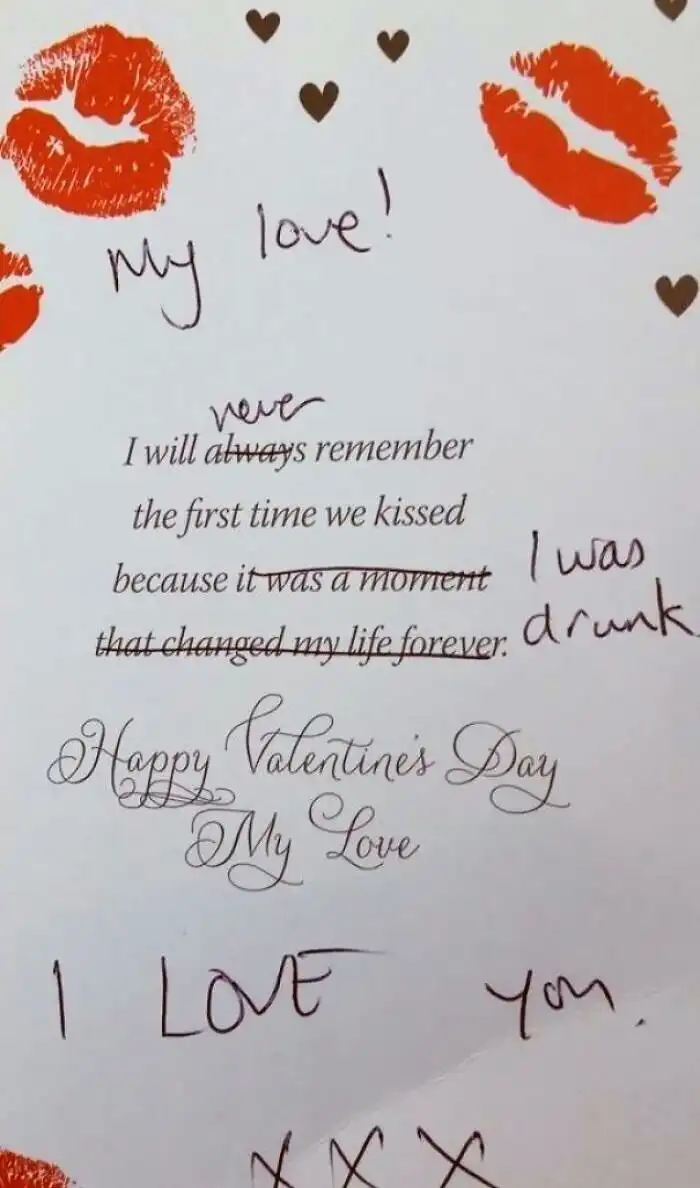 My love!
never
I will always remember
the first time we kissed
because it was a moment I was
that changed my life forever. drunk
Happy Valentine's Day
My Love
I LOVE you.
xxx